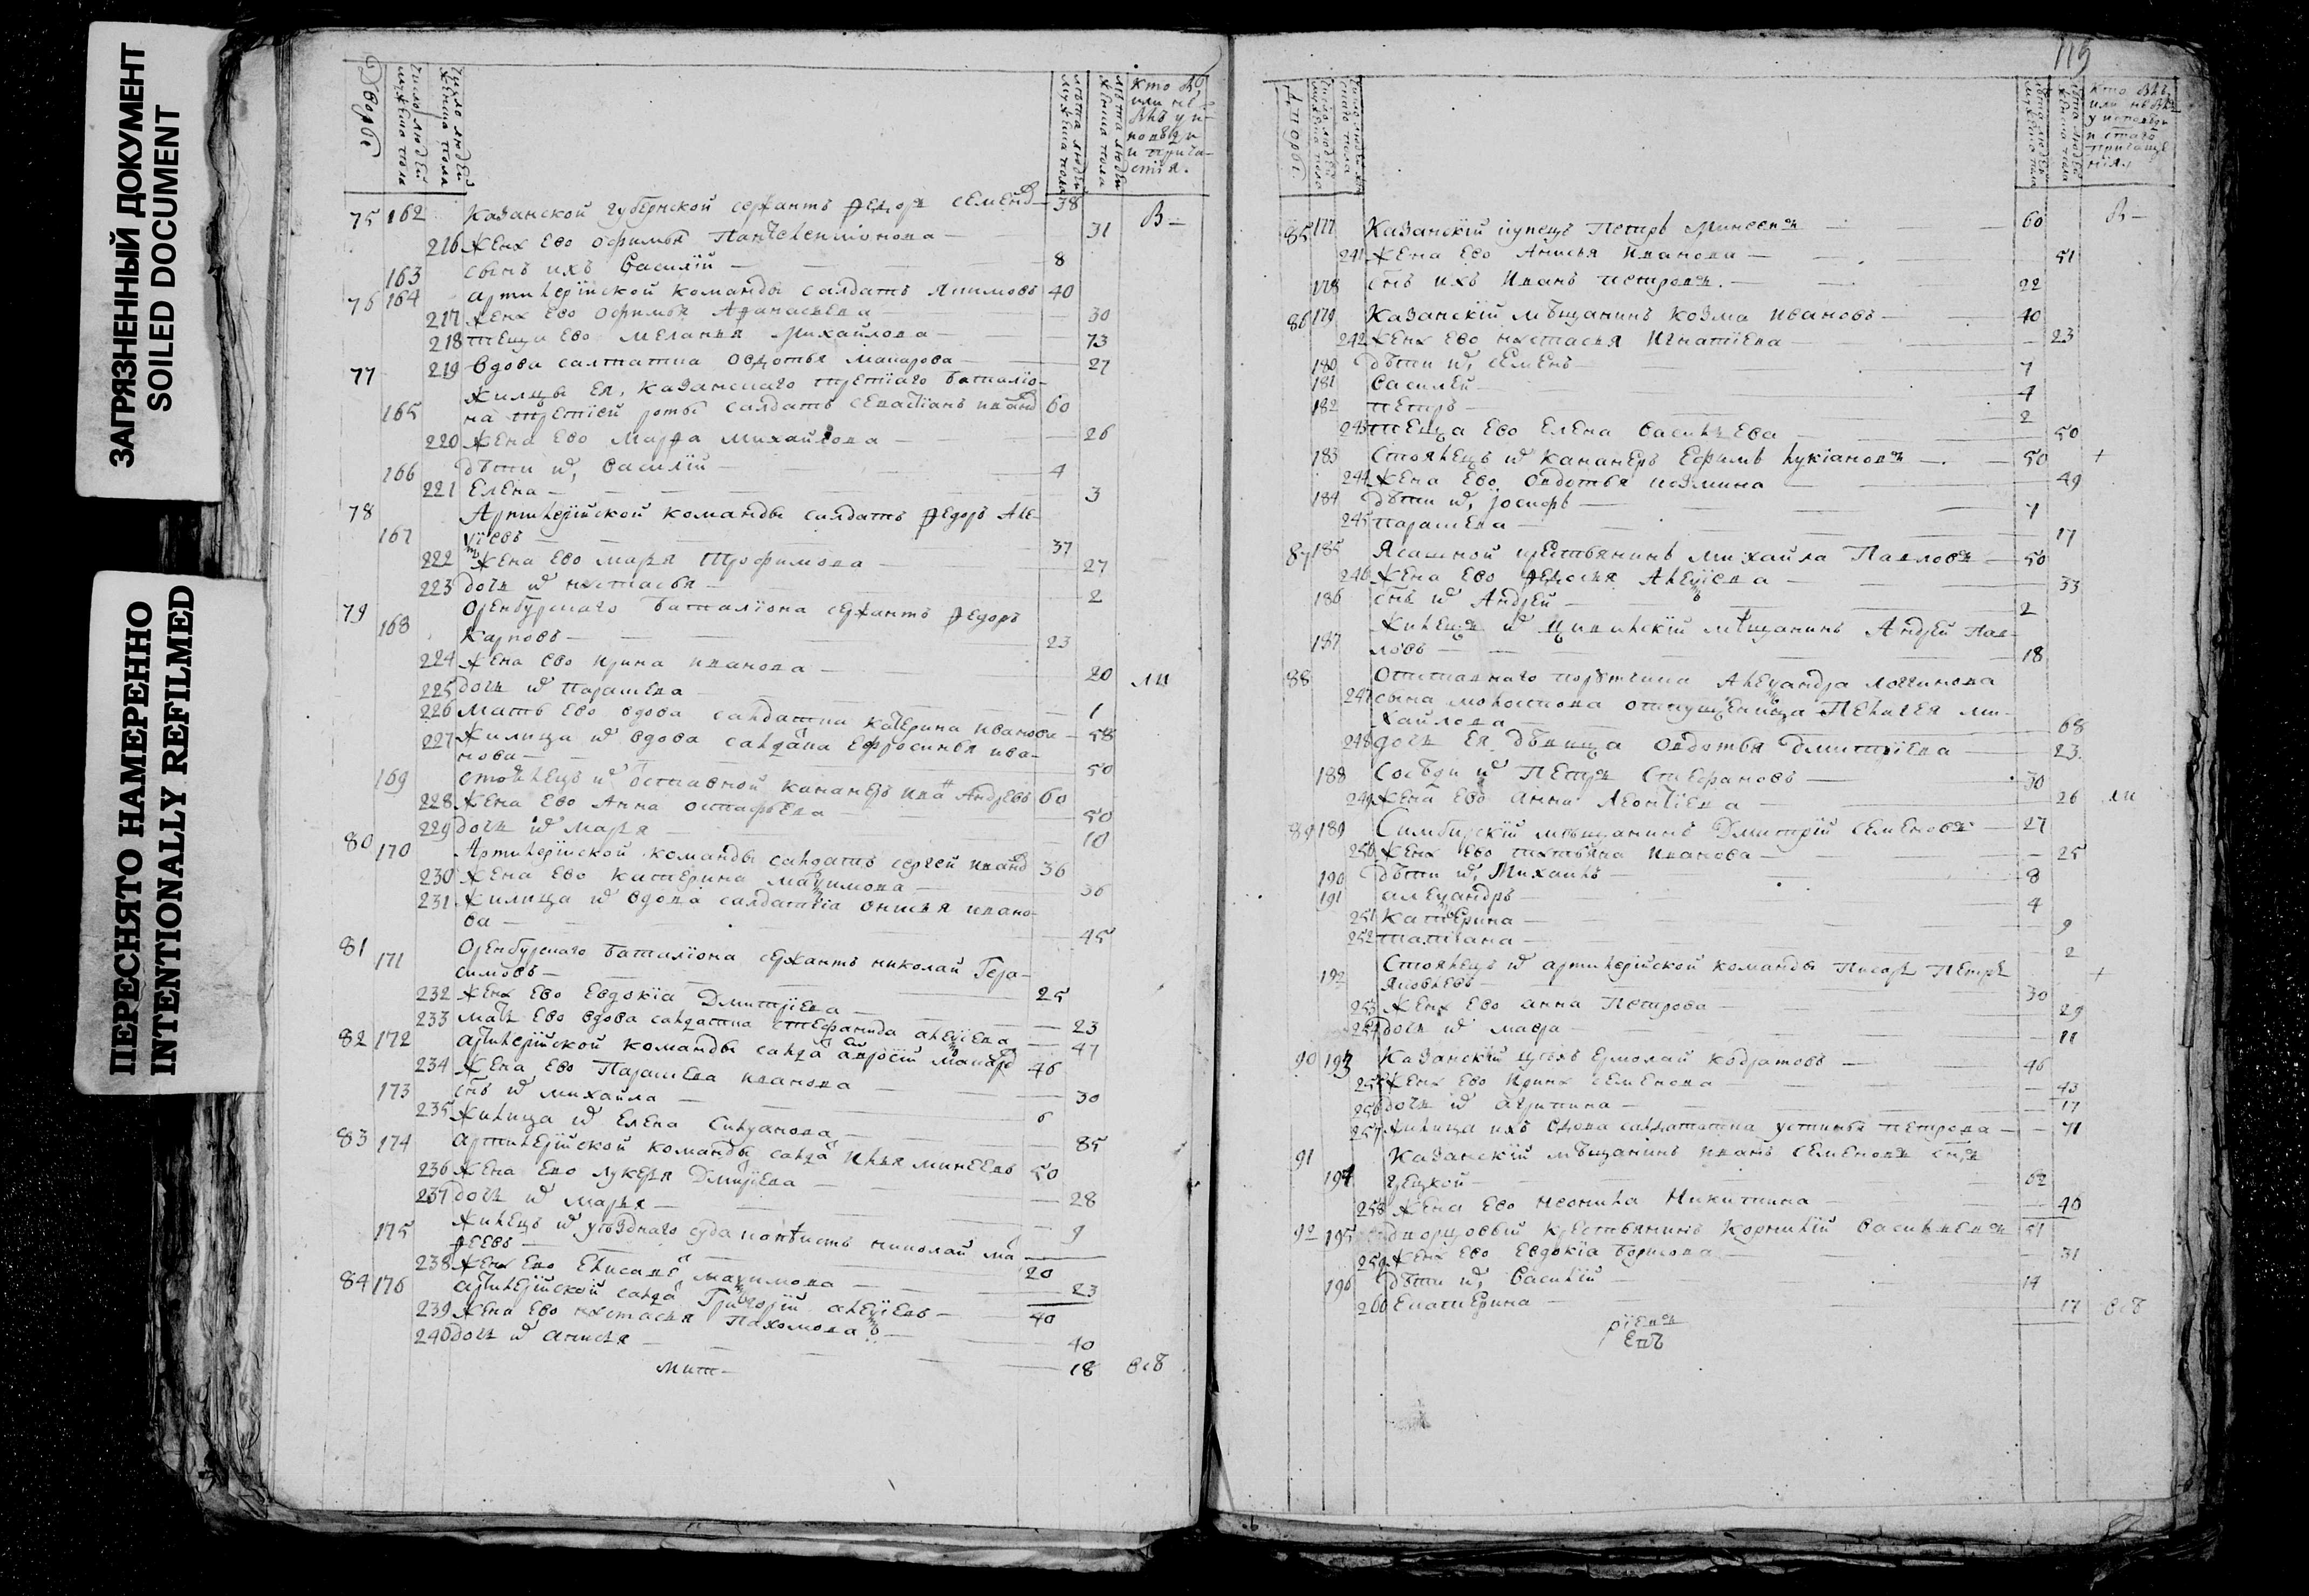 ЗАГРЯЗНЕННЫЙ ДОКУМЕНТ
SOILED DOCUMENT
ПЕРЕСНЯТО НАМЕРЕННО
INTENTIONALLY REFILMED
Дворы
Число людей мужеска пола
Число людей женска пола
лѣта людей мужеска пола
лѣта людей женска пола
75 162 Казанской губернской сержантъ Федоръ Семенов 38 В
216 жена ево Офимья 31
163 сынъ ихъ Василій 8
76 164 артилерійской команды салдатъ Якимовъ 40
217 жена ево Офимья Афанасьева 30
218 теща ево Меланья Михайлова 73
77 219 вдова салтатка Овдотья Макарова 27
жилцы ея, казанскаго третіаго баталіо-
165 на третей роты салдатъ Севастіанъ Иванов 60
220 жена ево Марфа Михайлова 26
166 дѣти и, Василій 4
221 Елена 3
78 Артилерійской команды салдатъ Федоръ Але-
167 ѯіевъ 37
222 жена ево Марья Трофимова 27
223 дочь и Настасья 2
79 Оренбурскаго баталіона сержантъ Федоръ
168 Карповъ 23
224 жена ево Ирина Иванова 20
225 дочь и Парасковева 1
226 мать ево вдова салдатка Катерина Иванова 58
227 жилица и вдова салдатка Ефросинья Ива-
нова 50
169 стоялецъ и отставной канонеръ Иван Андреевъ 60
228 жена ево Анна Остафьева 50
229 дочь и Марья 10
80 170 Артилерійской команды салдатъ Сергей Иванов 36
230 жена ево Катерина Маѯимова 36
231 жилица и вдова салдатка Онисья Ивано-
ва 45
81 171 Оренбурскаго баталіона сержантъ Николай Гера-
симовъ 25
232 жена ево Евдокіа Дмитріева 23
233 мать ево вдова салдатка Стефанида Алеѯіева 47
82 172 артилерійской команды салда Макаров 46
234 жена ево Парасковева Иванова 30
173 снъ и Михайла 6
235 жилица и Елена 85
83 174 артилерійской команды салда Илья Минеевъ 50
236 жена ево Лукерья Дмитріева 28
237 дочь и Марья 9
175 жилецъ и уѣзднаго суда копѣистъ Николай Ма
фѣевъ 20
238 жена ево Елисаве Маѯимова 23
84 176 артилерійской салда Григорій Алеѯіевъ 40
239 жена ево Настасья Пахомова 40
240 дочь и Анисья 18
115
Дворы
85 177 Казанскій купецъ Петръ Минеевъ 60 В
241 жена ево Анисья Иванова 51
178 снъ ихъ Иванъ Петровъ 22
86 179 Казанскій мѣщанинъ Козма Ивановъ 40
242 жена ево Настасья Игнатіева 23
180 дѣти и, Семенъ 7
181 Василей 4
182 Петръ 2
243 теща ево Елена Васильева 50
183 Стоялецъ и канонеръ Ефимъ Лукіановъ 50 +
244 жена ево Овдотья Козмина 49
184 дѣти и, Іосифъ 7
245 Парасковева 17
87 185 Ясашной крестьянинъ Михайла Павловъ 50
246 жена ево Федосья Алеѯіева 33
186 снъ и Андрей 2
жилецъ и Цивилскій мѣщанинъ Андрей Пав-
187 ловъ 18
88 Отставнаго порутчика Алеѯандра Логинова
247 сына Пелагея Ми-
хайлова 68
248 дочь ея дѣвица Овдотья Дмитріева 23
188 Сосѣди и Петръ Стефановъ 30
249 жена ево Анна Леонтіева 26
89 189 Симбирскій мѣщанинъ Дмитрій Семеновъ 27
250 жена ево Татьяна Иванова 25
190 дѣти и, Михаилъ 8
191 Алеѯандръ 4
251 Катерина 9
252 Татіана 2
192 Стоялецъ и артилерійской команды писарь Петръ +
Яковлевъ 30
253 жена ево Анна Петрова 29
254 дочь и Мавра 11
90 193 Казанскій Ермолай Кодратовъ 46
255 жена ево Ирина Семенова 43
256 дочь и Агрипина 17
257 жилица ихъ вдова салдатка Устинья Петрова 71
91 Казанскій мѣщанинъ Иванъ Семеновъ
194 62
258 жена ево Неонила Никитина 40
92 195 дворцовый крестьянинъ Корнилій Васильевъ 51
259 жена ево Евдокіа Борисова 31
196 дѣти и, Василій 14
260 Екатерина 17